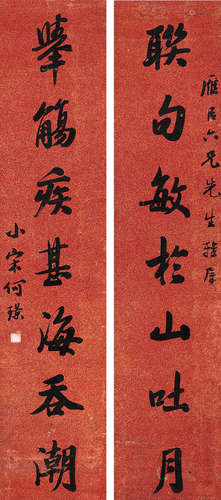 雁臣六兄先生雅属
联句敏於山吐月
举觞疾甚海吞潮
小宋何璟